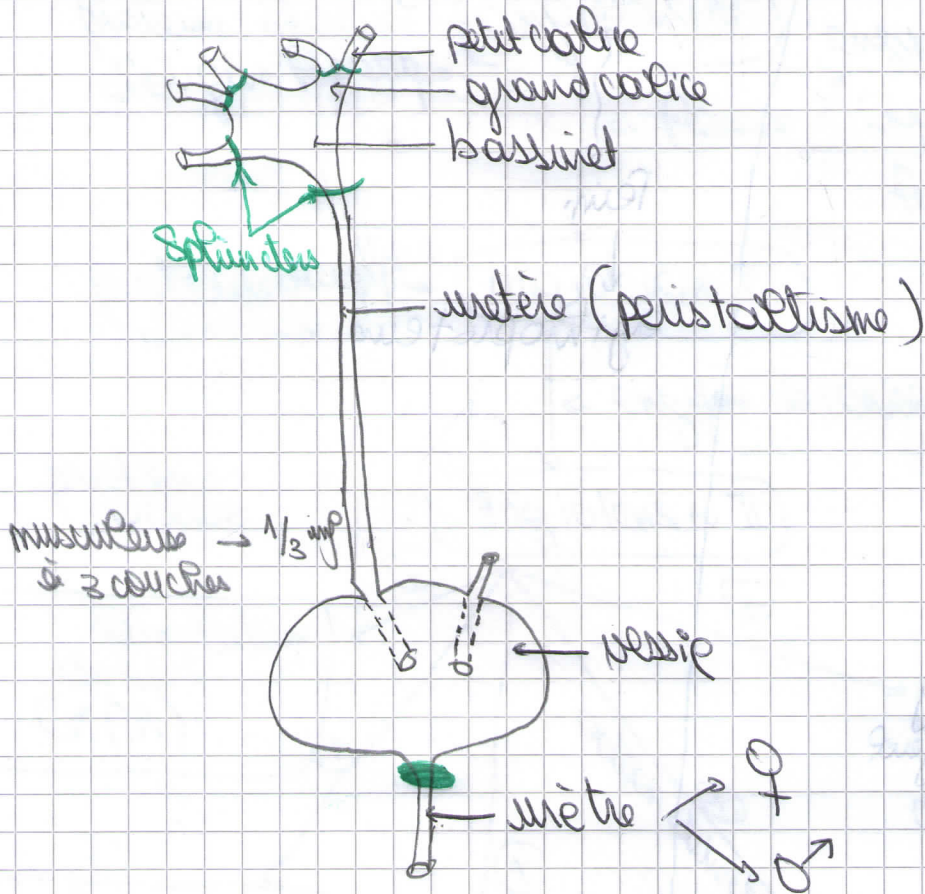 petit calice
grand calice
bassinet
Sphincters
uretère (péristaltisme)
musculeuse → 1/3 inf
à 3 couches
vessie
urètre
♀
♂